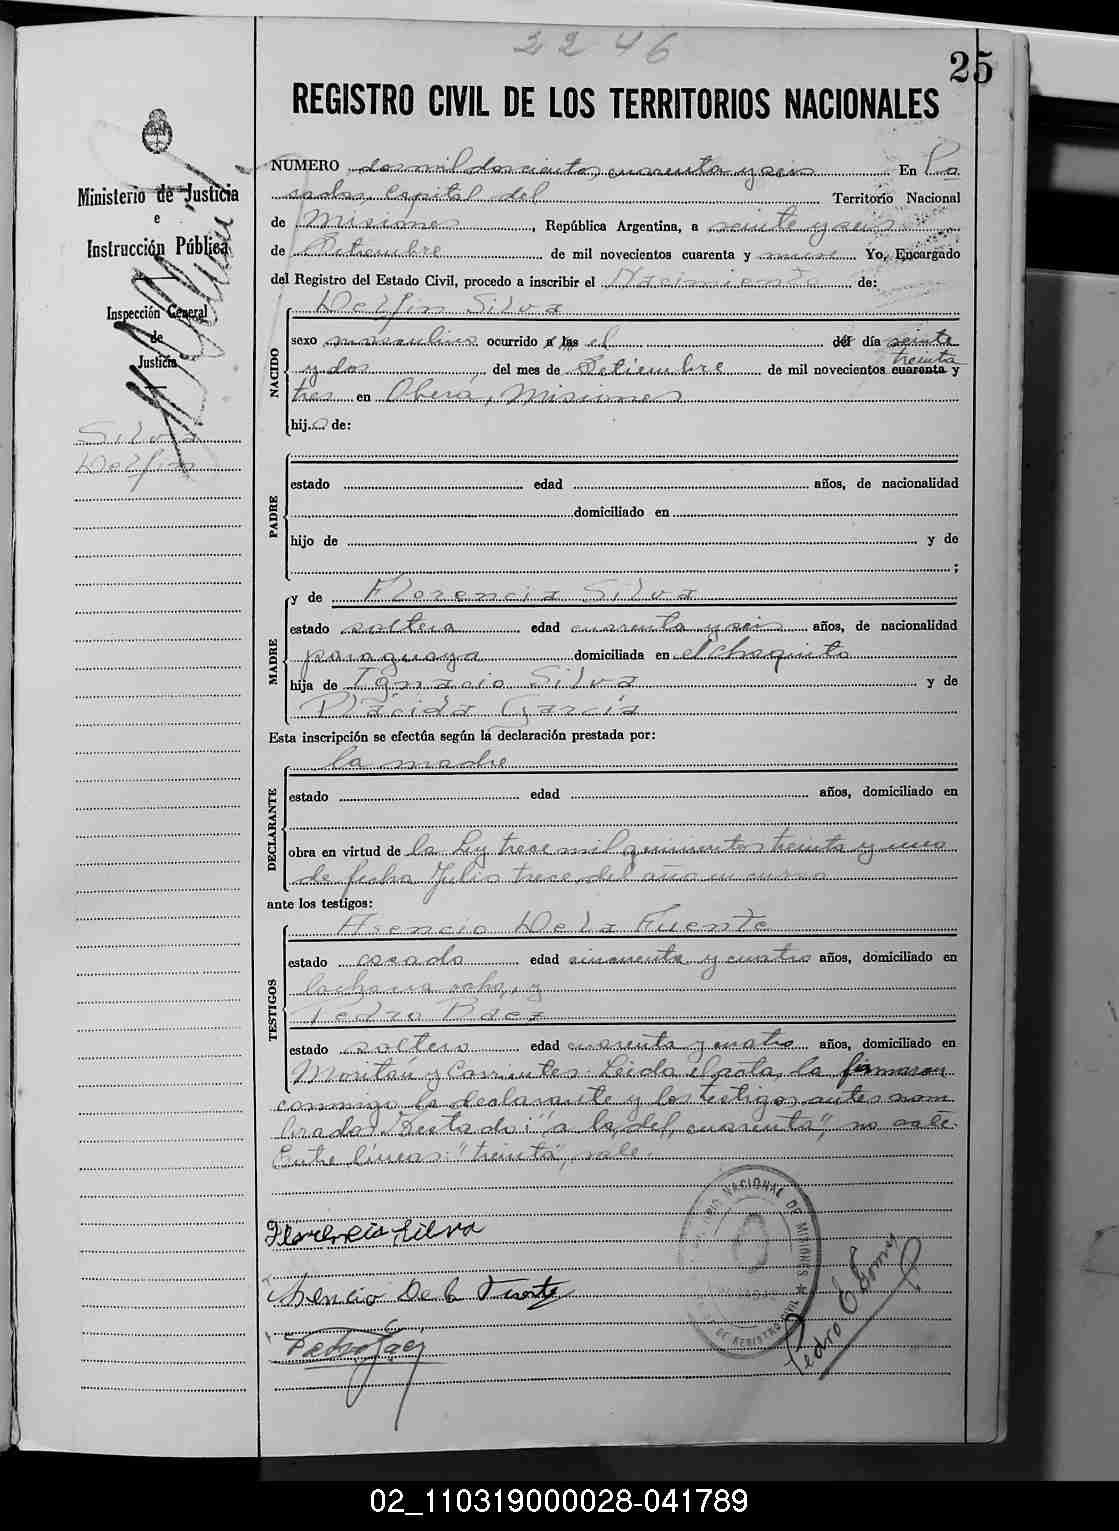 2246
25
REGISTRO CIVIL DE LOS TERRITORIOS NACIONALES
Ministerio de Justicia
e
Instrucción Pública
Inspección General
de
Justicia
Silva
Delfin
NUMERO dos mil doscientos cuarenta y seis En Po
sadas, Capital del Territorio Nacional
de Misiones, República Argentina, a veinte y seis
de Setiembre de mil novecientos cuarenta y nueve Yo, Encargado
del Registro del Estado Civil, procedo a inscribir el Nacimiento de:
NACIDO
Delfin Silva
sexo masculino ocurrido a las el del día veinte
treinta
y dos, del mes de Setiembre de mil novecientos cuarenta y
tres en Oberá, Misiones
hijo de:
PADRE
estado edad años, de nacionalidad
domiciliado en
hijo de y de
;
MADRE
y de Florencia Silva
estado soltera edad cuarenta y seis años, de nacionalidad
paraguaya domiciliada en el Chaquito
hija de Ignacio Silva y de
Plácida García
Esta inscripción se efectúa según la declaración prestada por:
DECLARANTE
la madre
estado edad años, domiciliado en
obra en virtud de la Ley trece mil quinientos treinta y uno
de fecha Julio trece del año en curso
ante los testigos:
TESTIGOS
Asencio De la Fuente
estado casado edad cincuenta y cuatro años, domiciliado en
la chacra ocho, y
Pedro Baez
estado soltero edad cuarenta y cuatro años, domiciliado en
Moritan y Corrientes. Leida el acta, la firmaron
conmigo la declarante y los testigos antes nom
brados. Testado: "a las, del, cuarenta", no vale.
Entre líneas: "treinta", vale.
Florencia Silva
Asencio De la Fuente
Pedro Baez
NACIONAL DE MISIONES
DE REGISTRO CIVIL
Pedro E Gomez
02_110319000028-041789